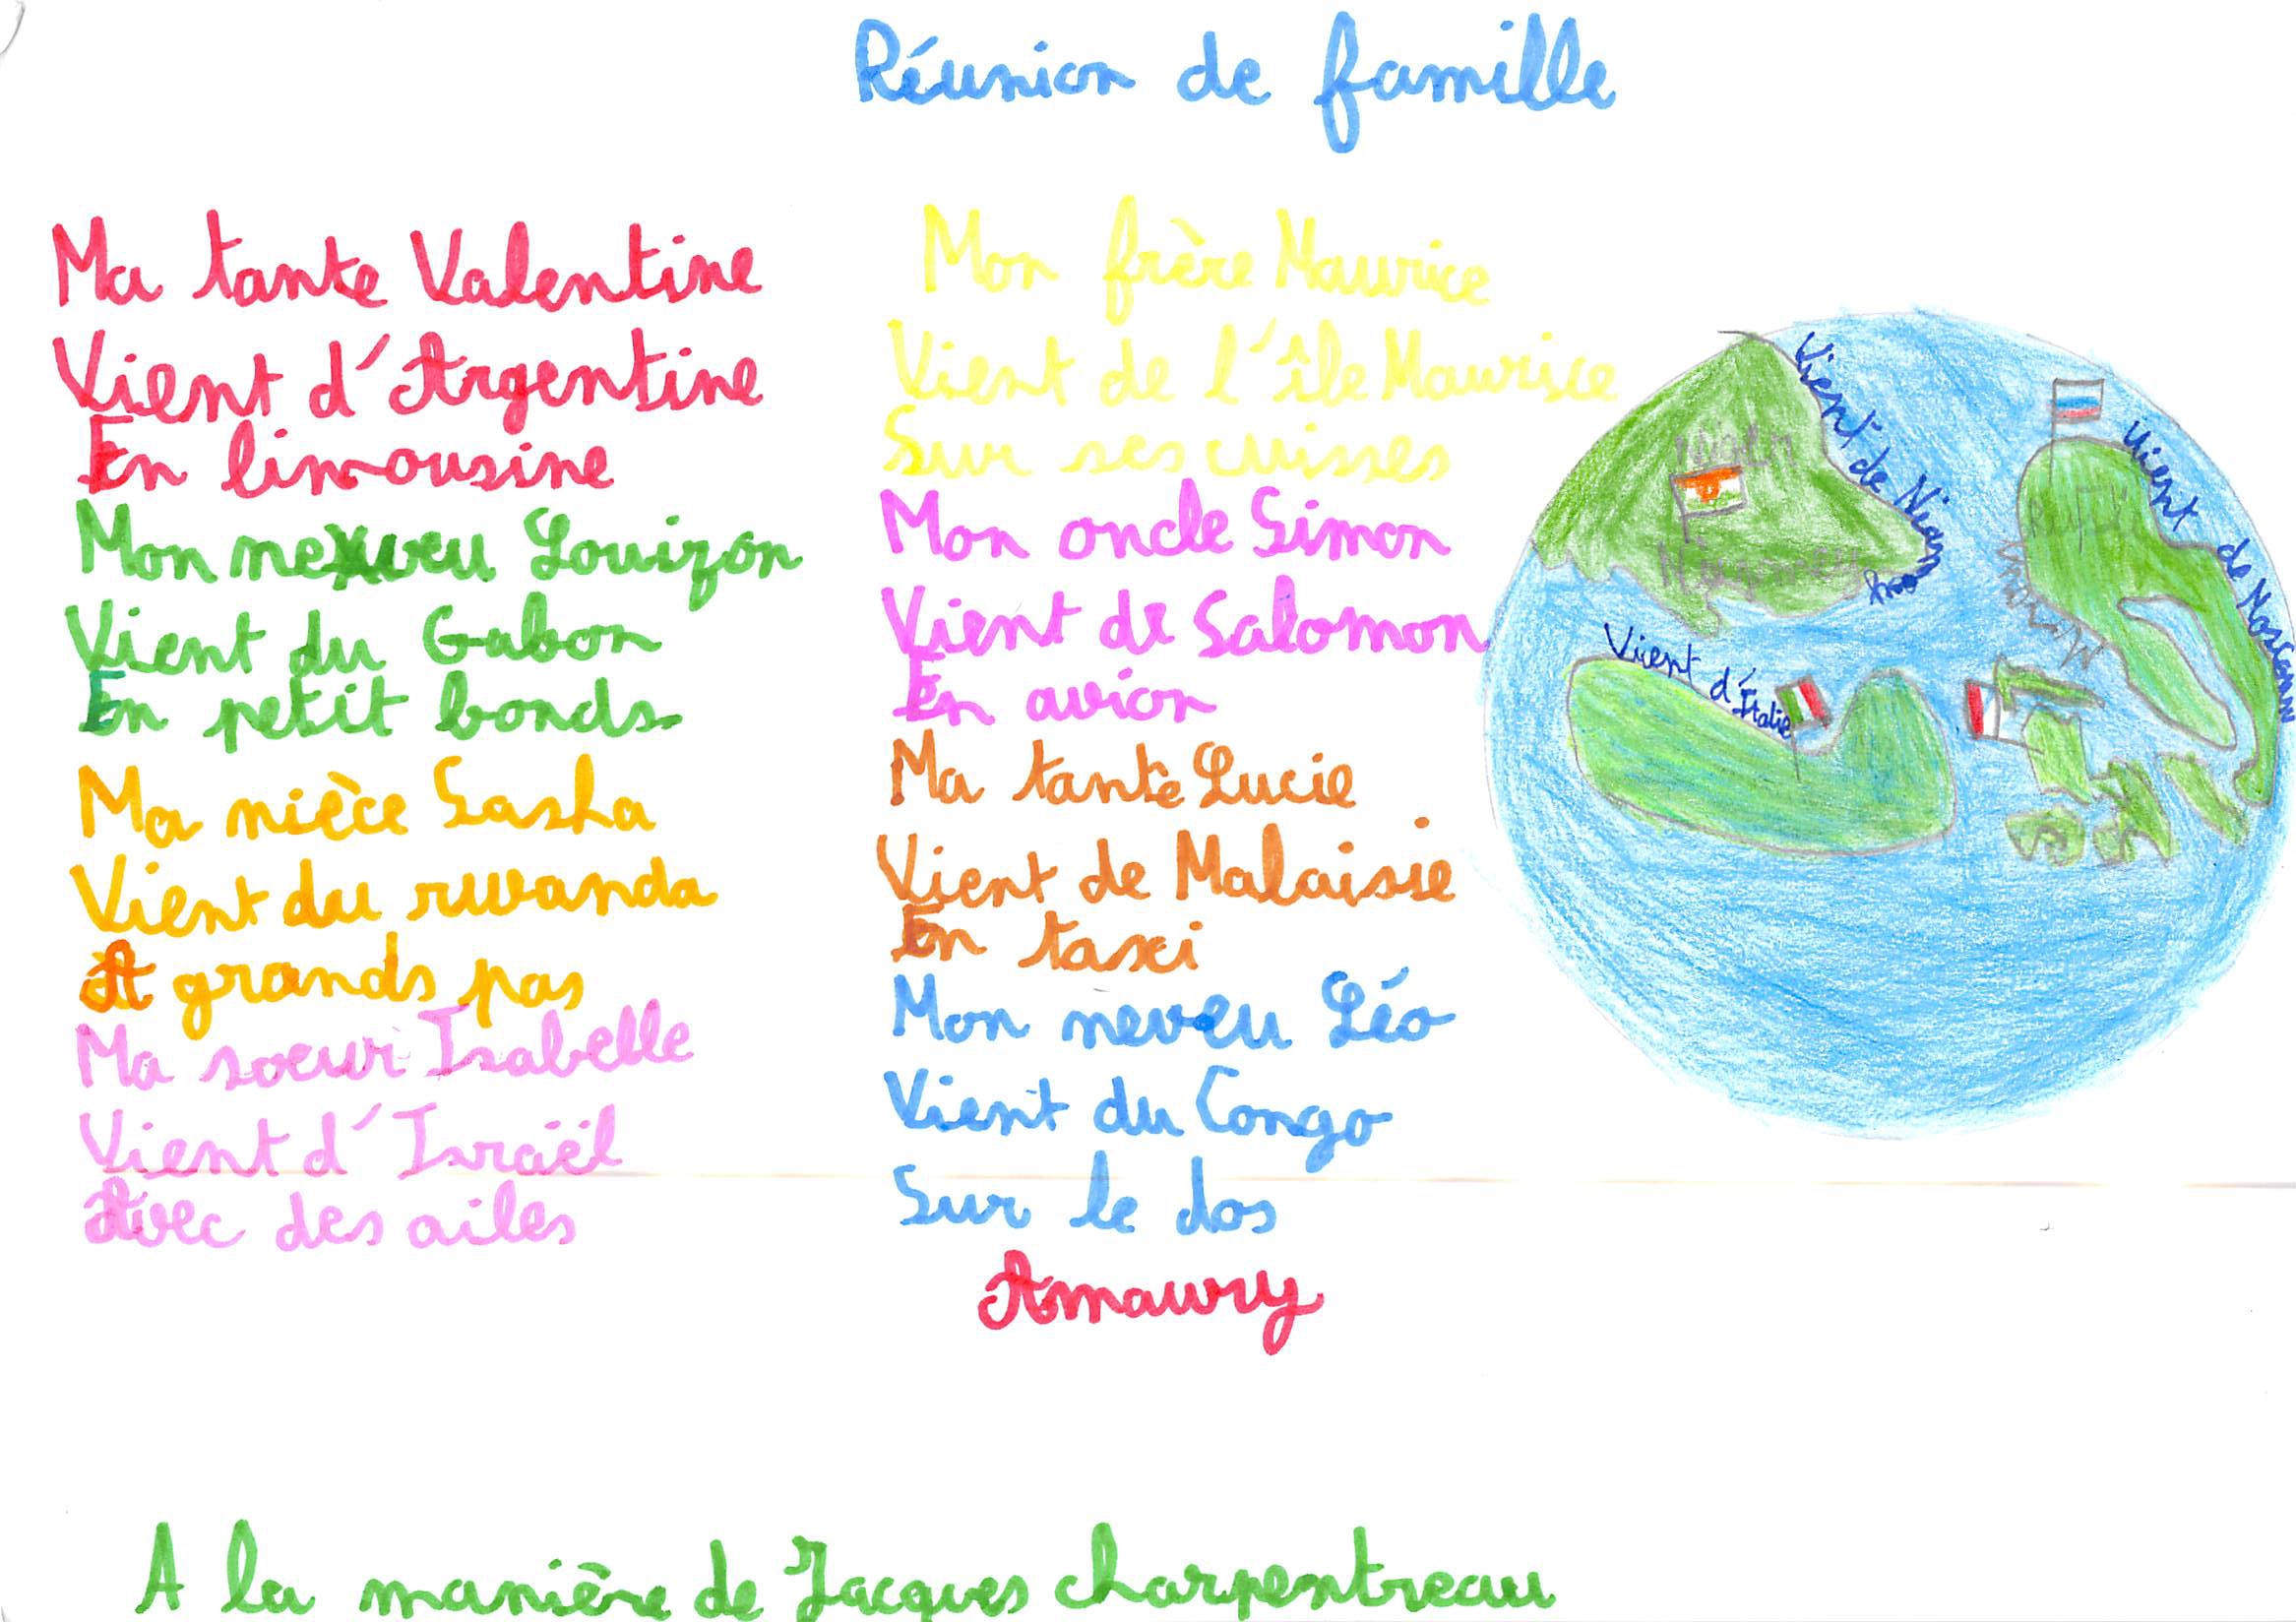 Réunion de famille
Ma tante Valentine
Vient d'Argentine
En limousine
Mon neveu Louizon
Vient du Gabon
En petit bonds
Ma nièce Sasha
Vient du rwanda
A grands pas
Ma soeur Isabelle
Vient d'Israël
Avec des ailes
Mon frère Maurice
Vient de l'île Maurice
Sur ses cuisses
Mon oncle Simon
Vient de Salomon
En avion
Ma tante Lucie
Vient de Malaisie
En taxi
Mon neveu Léo
Vient du Congo
Sur le dos
Amaury
Vient de
Vient de
Vient d'Italie
A la manière de Jacques charpentreau